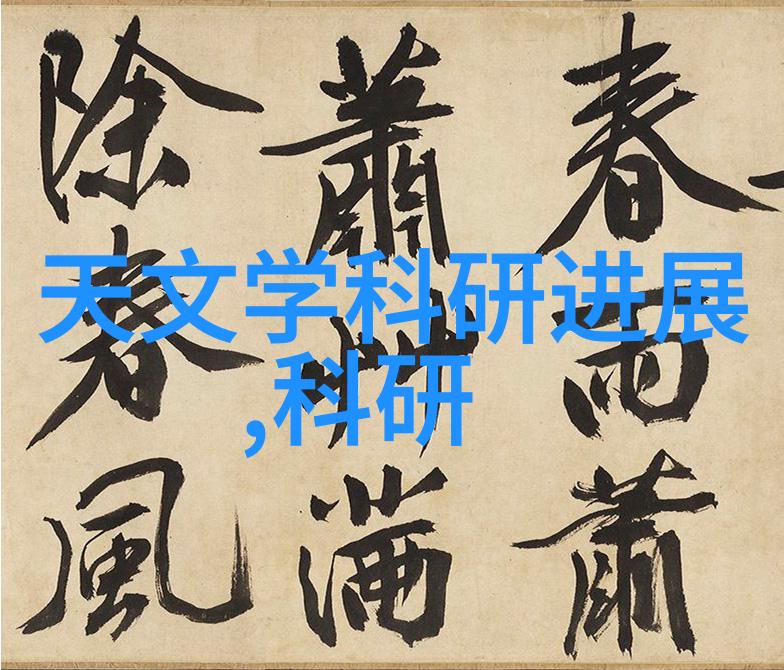 春雨蕭
蕭艸滿
除春風
天文学科研进展
,科研